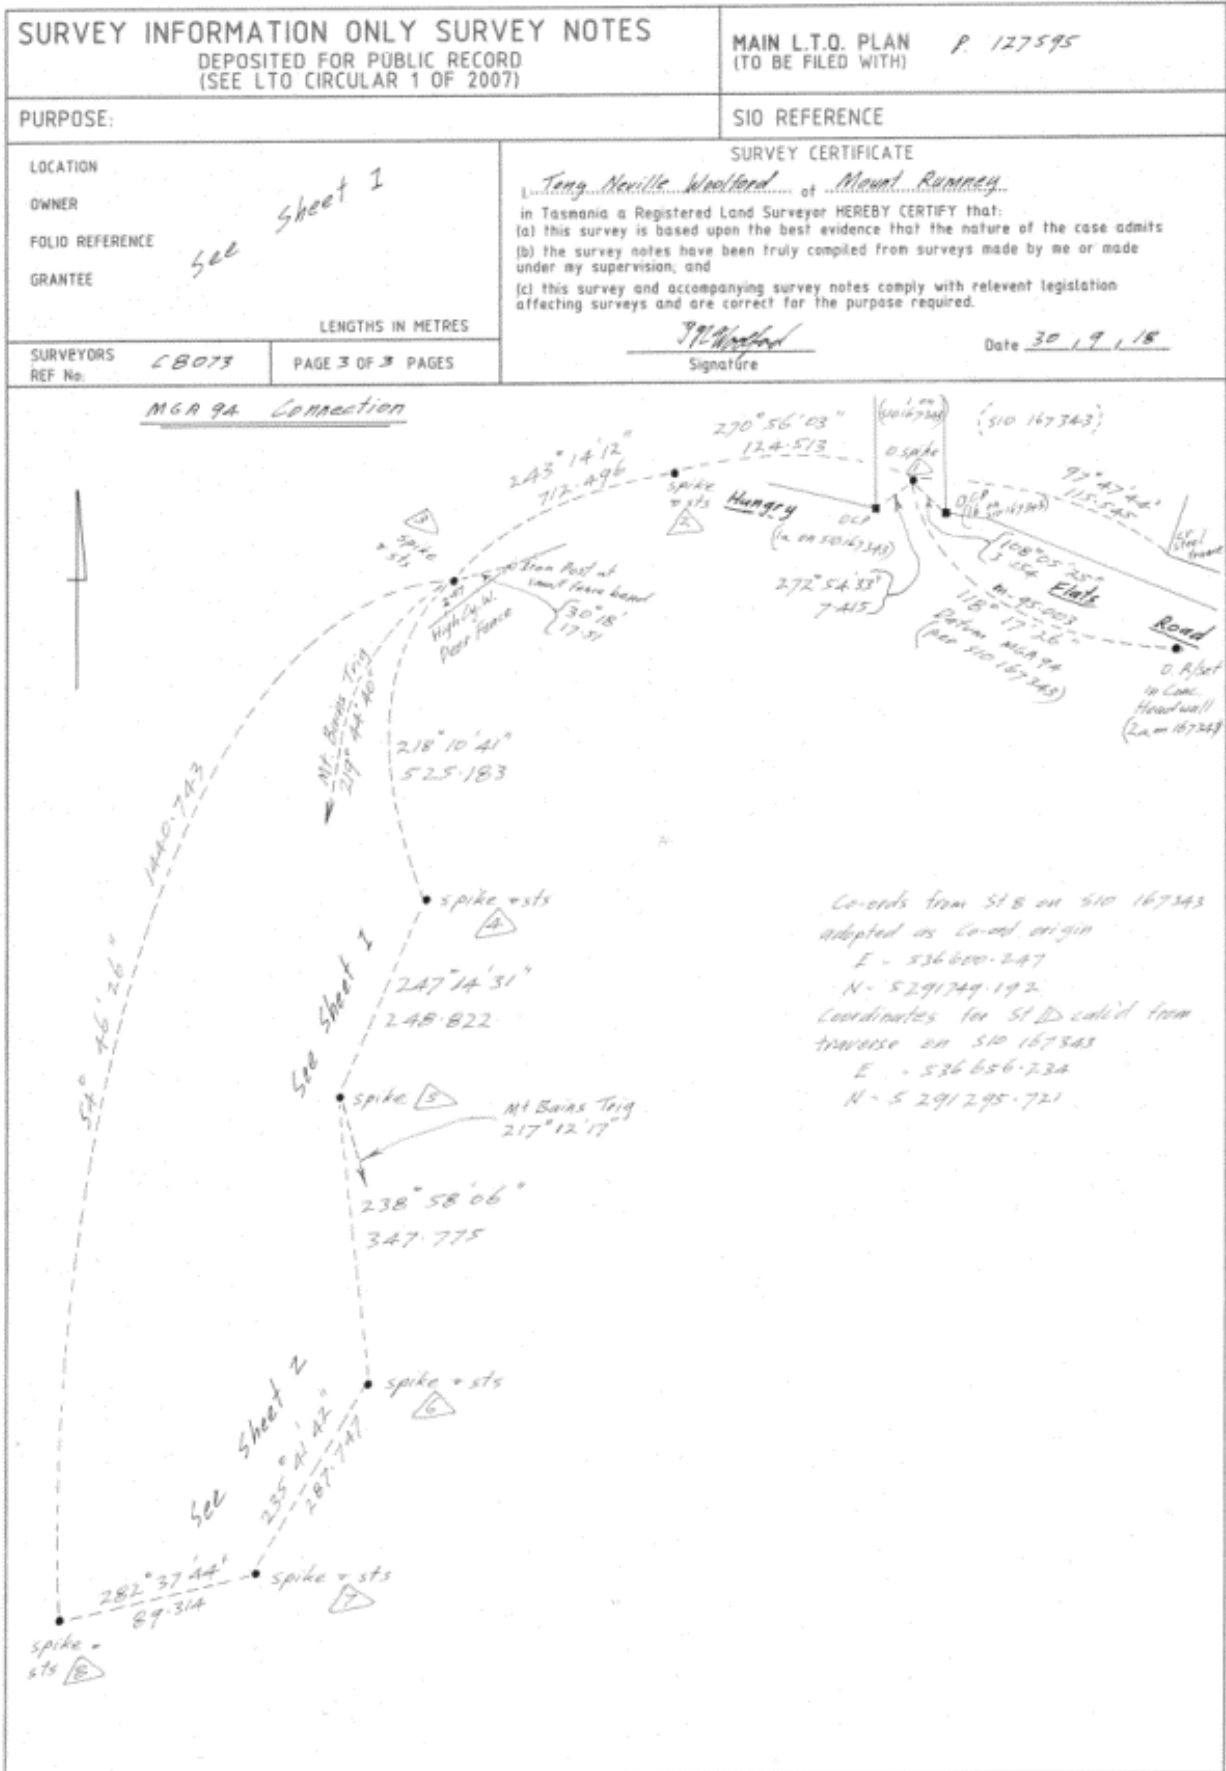 SURVEY INFORMATION ONLY SURVEY NOTES
DEPOSITED FOR PUBLIC RECORD
(SEE LTO CIRCULAR 1 OF 2007)
MAIN L.T.O. PLAN P. 127595
(TO BE FILED WITH)
PURPOSE:
SIO REFERENCE
LOCATION
OWNER
FOLIO REFERENCE
GRANTEE
See Sheet 1
LENGTHS IN METRES
SURVEYORS
REF No: CB073
PAGE 3 OF 3 PAGES
SURVEY CERTIFICATE
I, Tony Neville Woolford of Mount Rumney
in Tasmania a Registered Land Surveyor HEREBY CERTIFY that:
(a) this survey is based upon the best evidence that the nature of the case admits
(b) the survey notes have been truly compiled from surveys made by me or made
under my supervision; and
(c) this survey and accompanying survey notes comply with relevent legislation
affecting surveys and are correct for the purpose required.
Signature
Date 30 / 9 / 18
MGA 94 Connection
243° 14' 12"
712.496
270° 56' 03"
124.513
(SIO 167343)
O.spike
1
97° 47' 44"
115.545
spike
+ sts
2
Hungry
O.C.P
(1a on SIO 167343)
O.C.P
(1b on SIO 167343)
272° 54' 33"
7.415
108° 05' 25"
3.254
Flats
m-95.003
118° 17' 26"
Datum MGA 94
(per SIO 167343)
Road
in Conc.
Headwall
3
spike
+ sts
Iron Post at
small fence bend
30° 18'
17.51
High Cy. W.
Deer Fence
Mt. Bains Trig
219° 44' 40"
218° 10' 41"
525.183
1440.743
54° 46' 26"
spike + sts
4
See Sheet 1
247° 14' 31"
248.822
spike 5
Mt Bains Trig
217° 12' 17"
238° 58' 06"
347.775
spike + sts
6
See Sheet 2
235° 41' 42"
287.747
spike + sts
7
282° 37' 44"
89.314
spike +
sts 8
Co-ords from St 8 on SIO 167343
adopted as Co-ord origin
E - 536600.247
N - 5291749.192
Coordinates for St calc'd from
traverse on SIO 167343
E - 536656.234
N - 5 291 295.721